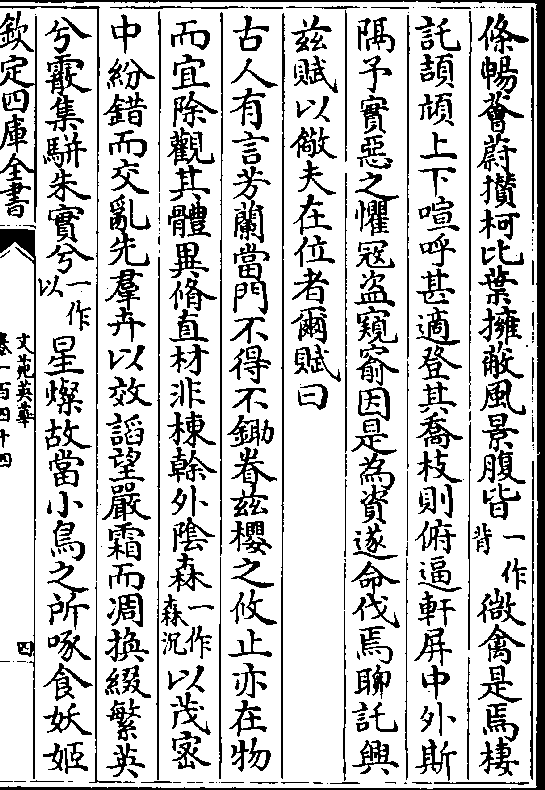 條暢薈蔚攢柯比葉擁蔽風景腹皆一作背微禽是焉棲
託頡頏上下喧呼甚適登其喬枝則俯逼軒屏中外斯
隔予實惡之懼冦盜窺窬因是為資遂命伐焉聊託興
兹賦以儆夫在位者爾賦曰
古人有言芳蘭當門不得不鋤眷兹櫻之攸止亦在物
而宜除觀其體異脩直材非棟榦外陰森一作森沉以茂密
中紛錯而交亂先羣卉以效諂望嚴霜而凋換綴繁英
兮霰集駢朱實兮一作以星燦故當小鳥之所啄食妖姬
欽定四庫全書
文苑英華
卷一百四十四
四